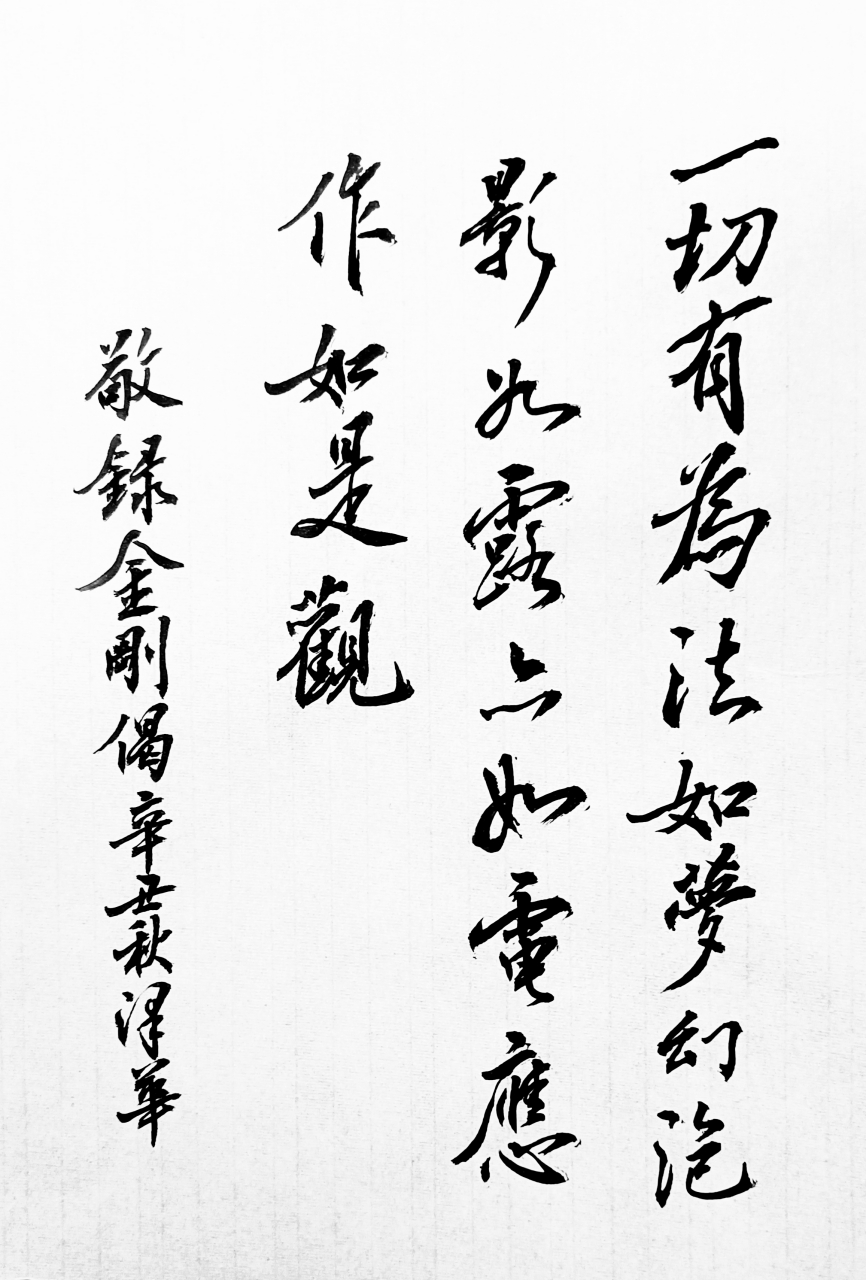 一切有為法如夢幻泡
影如露亦如電應
作如是觀
敬録金剛偈辛丑秋澤華